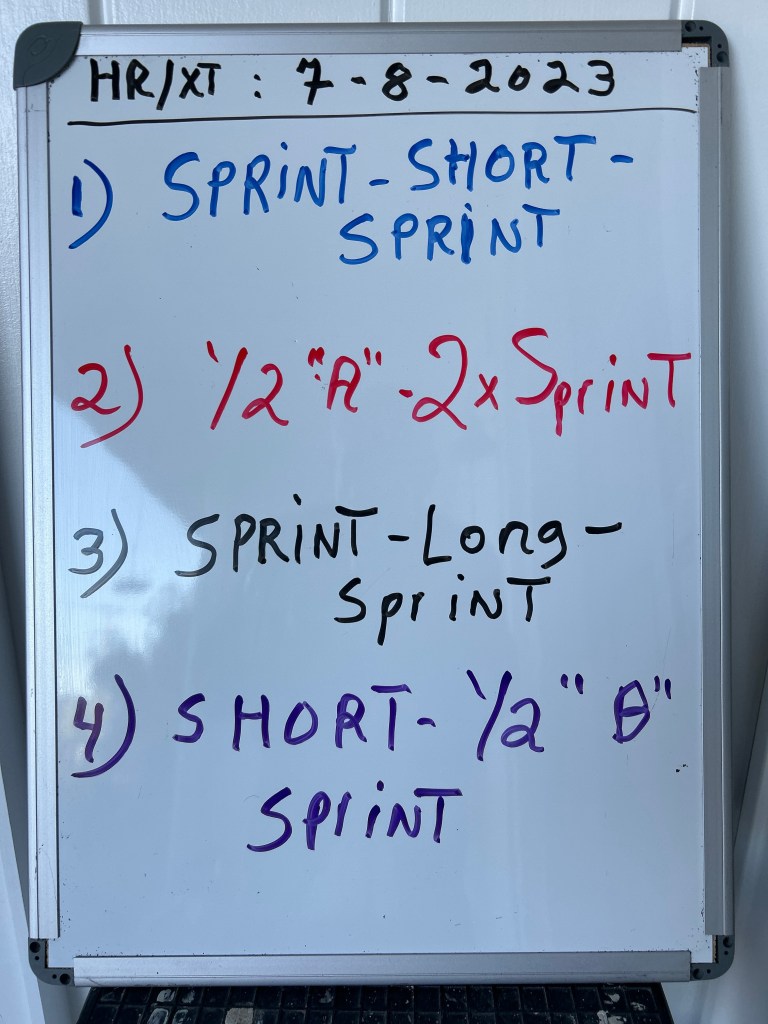 HR/XT : 7-8-2023
1) SPRINT-SHORT-
SPRINT
2) 1/2 "A"-2x SprinT
3) SPRINT-Long-
SprinT
4) SHORT- 1/2 "B"
SPrinT